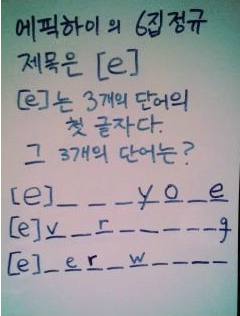 에픽하이의 6집 정규
제목은 [e]
[e]는 3개의 단어의
첫 글자다.
그 3개의 단어는?
[e]_ _ _ y o _ e
[e]v _ r _ _ _ _ _ g
[e]_ e r _ w _ _ _ _